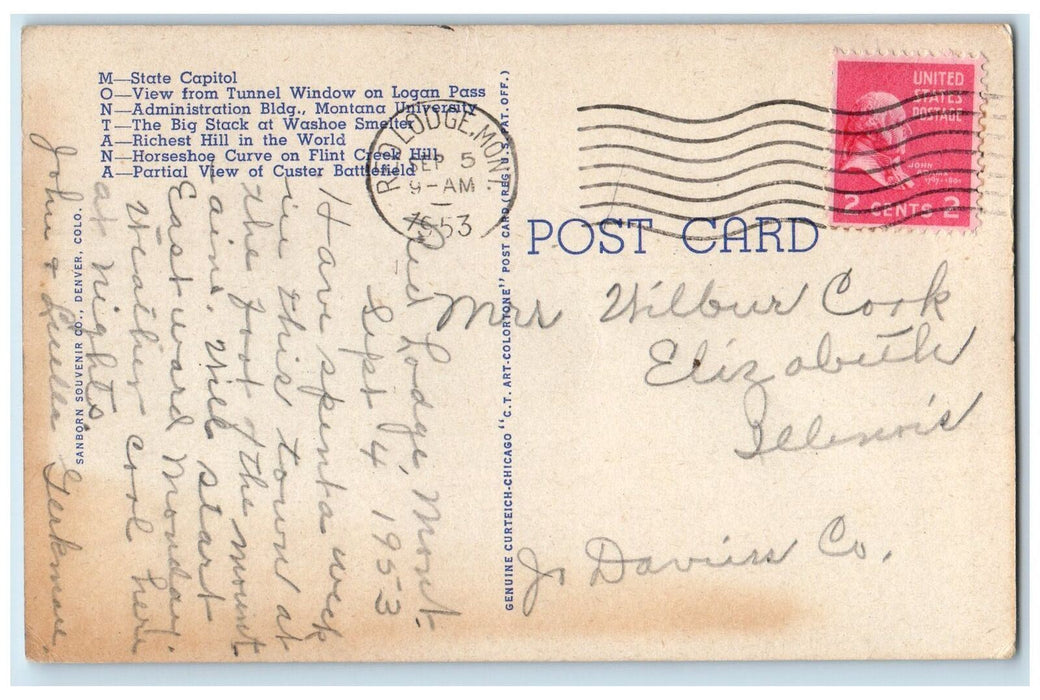 M—State Capitol
O—View from Tunnel Window on Logan Pass
N—Administration Bldg., Montana University
T—The Big Stack at Washoe Smelter
A—Richest Hill in the World
N—Horseshoe Curve on Flint Creek Hill
A—Partial View of Custer Battlefield
RED LODGE, MONT.
SEP 5
9-AM
1953
UNITED
STATES
POSTAGE
JOHN
2 CENTS 2
POST CARD
Red Lodge, Mont.
Sept 4 1953
Have spent a week
in this town at
the foot of the mount
ains. Will start
Eastward Monday.
Weather cool here
at nights.
John &
Mrs Wilbur Cook
Elizabeth
Illinois
Jo Daviess Co.
SANBORN SOUVENIR CO., DENVER, COLO.
GENUINE CURTEICH-CHICAGO "C. T. ART-COLORTONE" POST CARD (REG. U. S. PAT. OFF.)